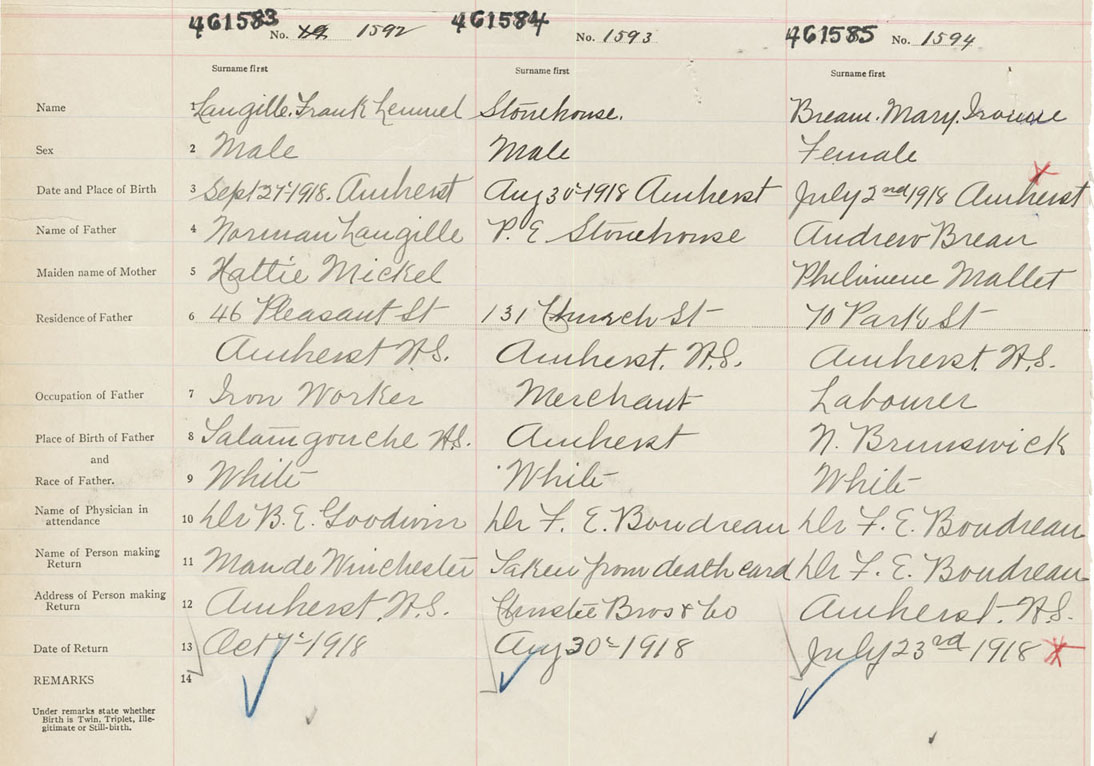 461583 No. 1592 461584 No. 1593 461585 No. 1594
Surname first Surname first Surname first
Name 1 Langille. Frank Lemuel Stonehouse. Bream. Mary.
Sex 2 Male Male Female
Date and Place of Birth 3 Sept 27-1918. Amherst Aug 30-1918 Amherst July 2nd 1918 Amherst
Name of Father 4 Norman Langille P. E Stonehouse Andrew Breau
Maiden name of Mother 5 Hattie Mickel Philimene Mallet
Residence of Father 6 46 Pleasant St 131 Church St 70 Park St
Amherst N.S. Amherst. N.S. Amherst. N.S.
Occupation of Father 7 Iron Worker Merchant Labourer
Place of Birth of Father 8 N.S. Amherst N. Brunswick
and
Race of Father. 9 White White White
Name of Physician in
attendance 10 Dr B. E. Goodwin Dr F. E. Boudreau Dr F. E. Boudreau
Name of Person making
Return 11 Maude Winchester Taken from death card Dr F. E. Boudreau
Address of Person making
Return 12 Amherst. N.S. Christie Bros & Co Amherst. N.S.
Date of Return 13 Oct 7-1918 Aug 30-1918 July 23rd 1918
REMARKS 14
Under remarks state whether
Birth is Twin, Triplet, Ille-
gitimate or Still-birth.